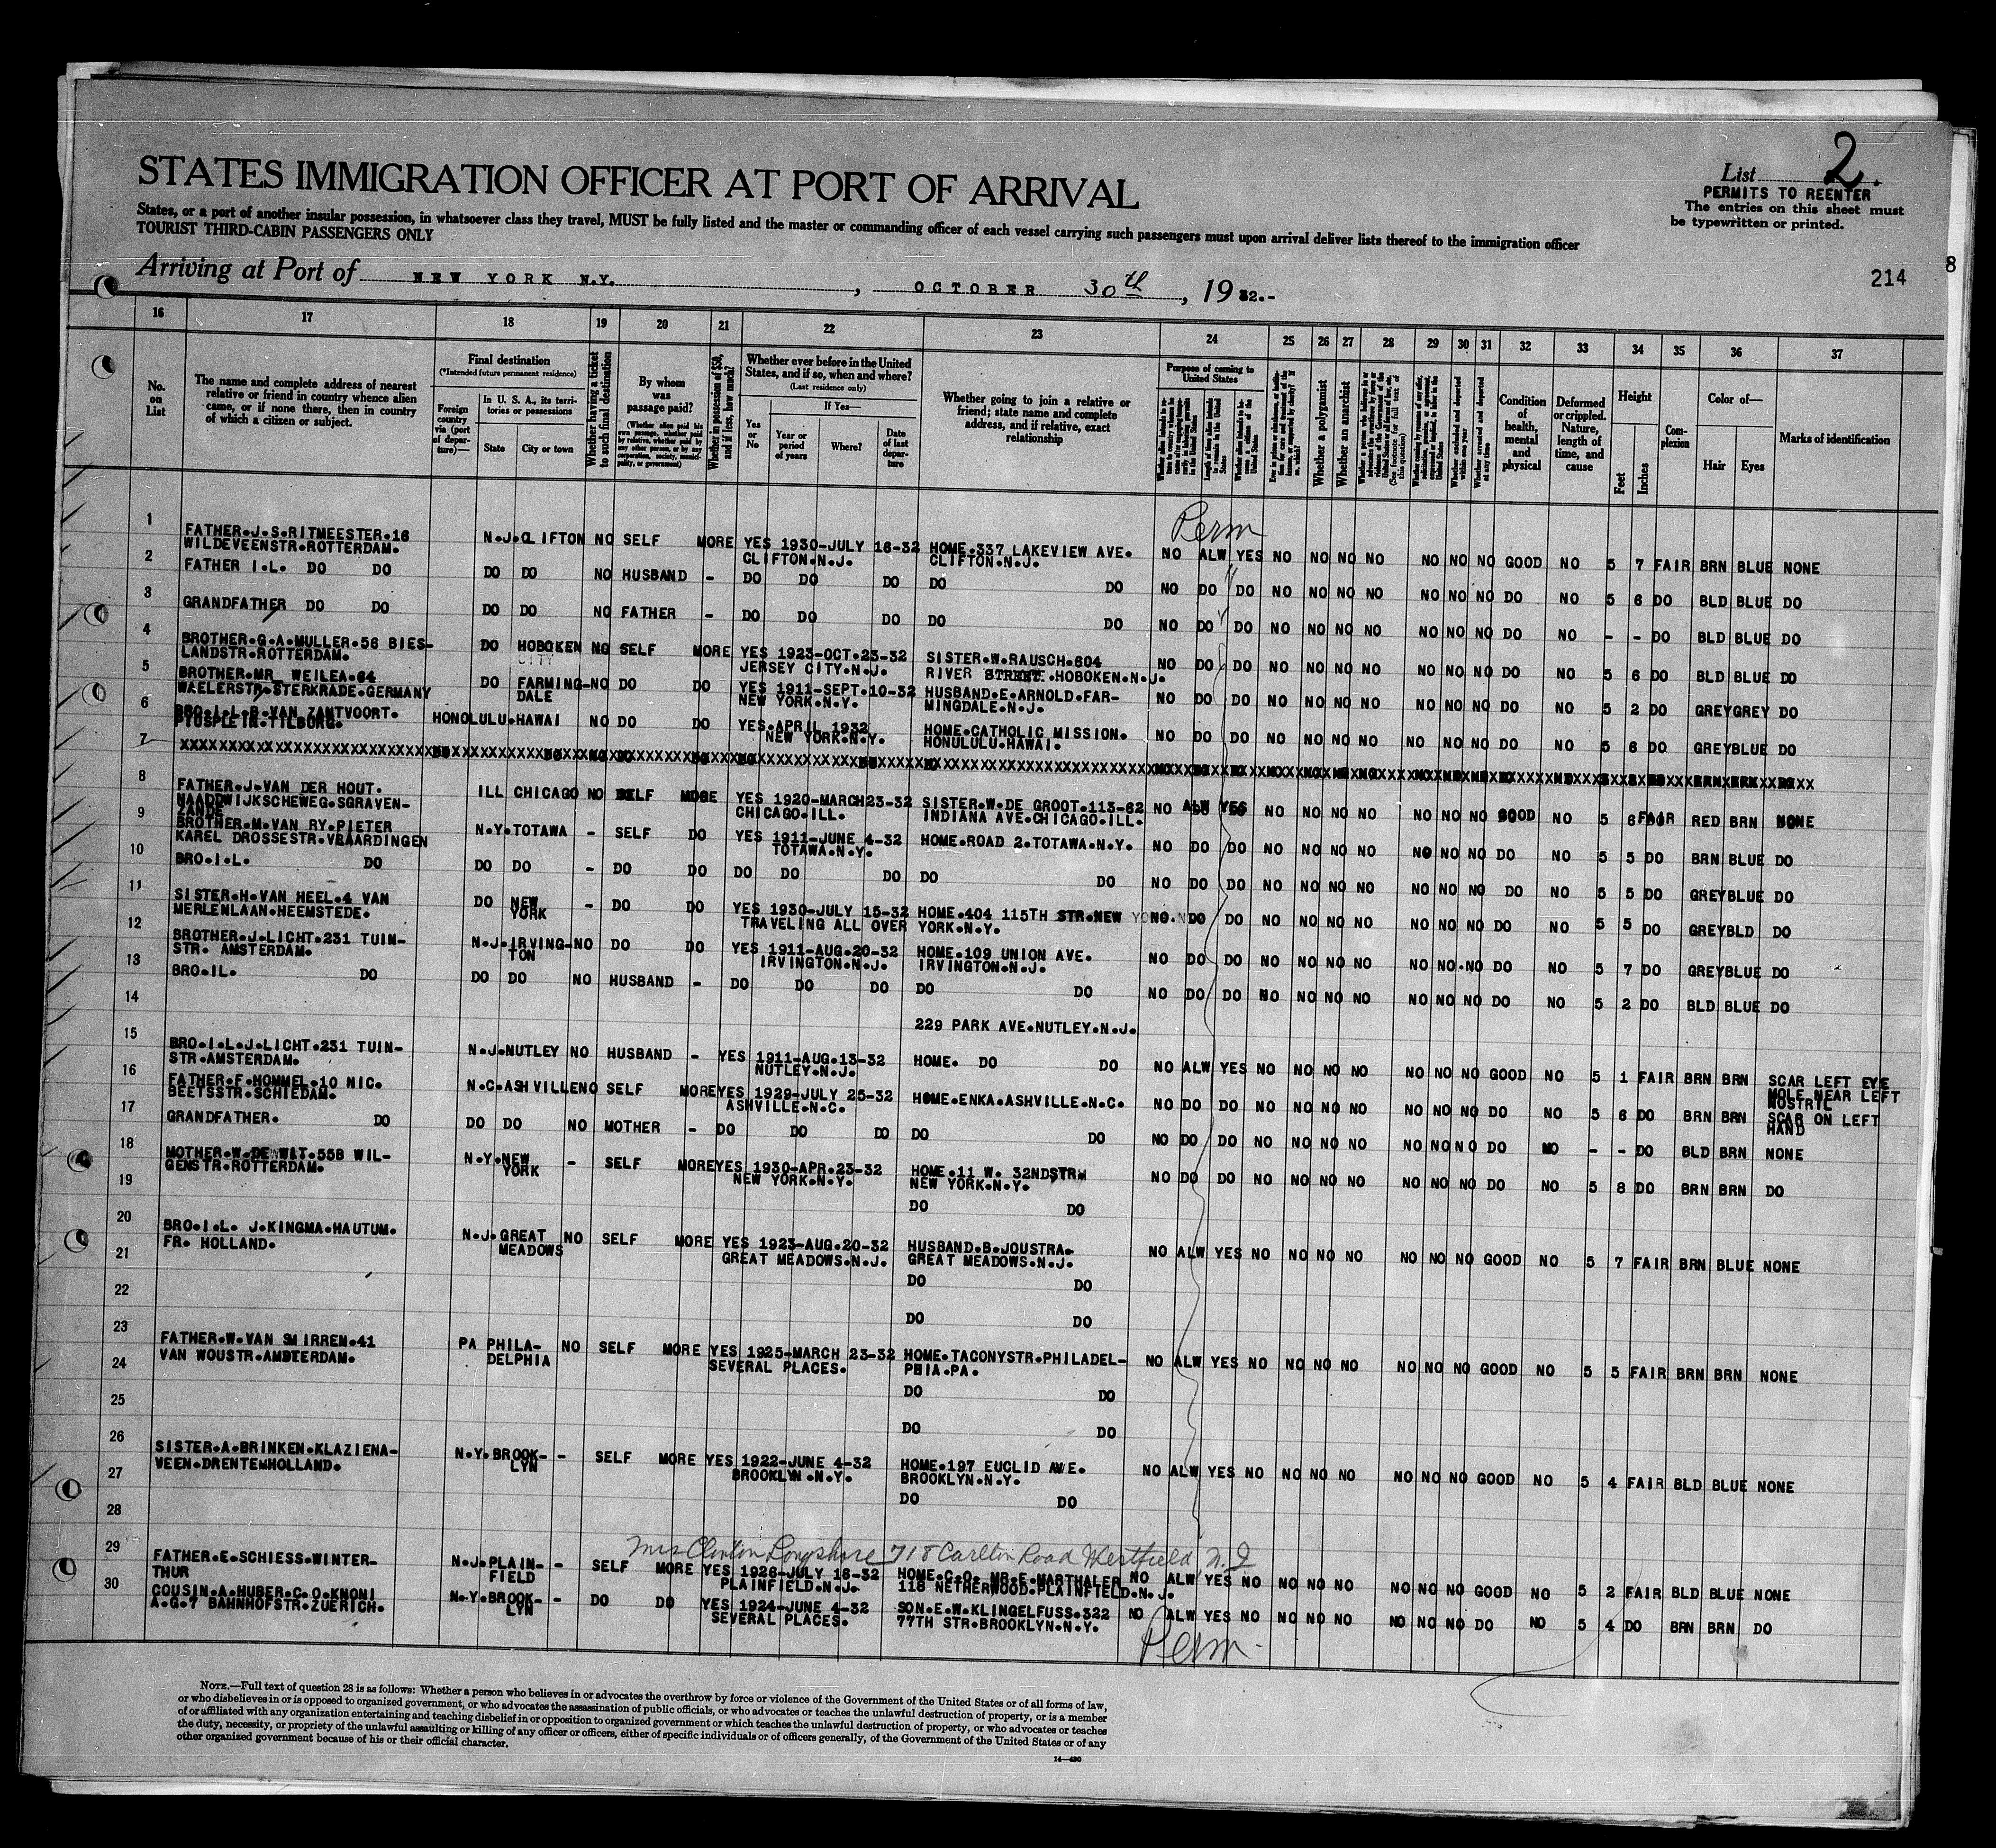 STATES IMMIGRATION OFFICER AT PORT OF ARRIVAL
List 2.
PERMITS TO REENTER
The entries on this sheet must
be typewritten or printed.
States, or a port of another insular possession, in whatsoever class they travel, MUST be fully listed and the master or commanding officer of each vessel carrying such passengers must upon arrival deliver lists thereof to the immigration officer
TOURIST THIRD-CABIN PASSENGERS ONLY
Arriving at Port of NEW YORK N.Y. , OCTOBER 30th , 19 32.-
214
8
16 17 18 19 20 21 22 23 24 25 26 27 28 29 30 31 32 33 34 35 36 37
No. on List
The name and complete address of nearest relative or friend in country whence alien came, or if none there, then in country of which a citizen or subject.
Final destination
(*Intended future permanent residence)
Foreign country via (port of departure)—
In U. S. A., its territories or possessions
State
City or town
Whether having a ticket to such final destination
By whom was passage paid?
(Whether alien paid his own passage, whether paid by relative, whether paid by any other person, or by any corporation, society, municipality, or government)
Whether in possession of $50, and if less, how much?
Whether ever before in the United States, and if so, when and where?
(Last residence only)
Yes or No
If Yes—
Year or period of years
Where?
Date of last departure
Whether going to join a relative or friend; state name and complete address, and if relative, exact relationship
Purpose of coming to United States
Whether a polygamist
Whether an anarchist
Condition of health, mental and physical
Deformed or crippled. Nature, length of time, and cause
Height
Feet
Inches
Complexion
Color of—
Hair
Eyes
Marks of identification
Perm
1 FATHER.J.S.RITMEESTER.16 N.J. CLIFTON NO SELF MORE YES 1930-JULY 16-32 HOME.337 LAKEVIEW AVE. NO ALW YES NO NO NO NO NO NO NO GOOD NO 5 7 FAIR BRN BLUE NONE
WILDEVEENSTR.ROTTERDAM. CLIFTON.N.J. CLIFTON.N.J.
2 FATHER I.L. DO DO DO DO NO HUSBAND - DO DO DO DO DO NO DO DO NO NO NO NO NO NO NO DO NO 5 6 DO BLD BLUE DO
3 GRANDFATHER DO DO DO DO NO FATHER - DO DO DO DO DO NO DO DO NO NO NO NO NO NO NO DO NO - - DO BLD BLUE DO
4 BROTHER.G.A.MULLER.56 BIES- DO HOBOKEN NO SELF MORE YES 1923-OCT.23-32 SISTER.W.RAUSCH.604 NO DO DO NO NO NO NO NO NO NO DO NO 5 6 DO BLD BLUE DO
LANDSTR.ROTTERDAM. CITY JERSEY CITY.N.J. RIVER STREET.HOBOKEN.N.J.
5 BROTHER.MR WEILEA.64 DO FARMING- NO DO DO YES 1911-SEPT.10-32 HUSBAND.E.ARNOLD.FAR- NO DO DO NO NO NO NO NO NO NO DO NO 5 2 DO GREY GREY DO
WAELERSTR.STERKRADE.GERMANY DALE NEW YORK.N.Y. MINGDALE.N.J.
6 BRO.I.L.R.VAN ZANTVOORT. HONOLULU.HAWAI NO DO DO YES.APRIL 1932 HOME.CATHOLIC MISSION. NO DO DO NO NO NO NO NO NO NO DO NO 5 6 DO GREY BLUE DO
PIUSPLEIN.TILBURG. NEW YORK.N.Y. HONULULU.HAWAI.
7
8 FATHER.J.VAN DER HOUT. ILL CHICAGO NO SELF MORE YES 1920-MARCH 23-32 SISTER.W.DE GROOT.113-62 NO ALW YES NO NO NO NO NO NO NO GOOD NO 5 6 FAIR RED BRN NONE
NAADDWIJKSCHEWEG.SGRAVEN- CHICAGO.ILL. INDIANA AVE.CHICAGO.ILL.
ZANDE
9 BROTHER.M.VAN RY.PIETER N.Y. TOTAWA - SELF DO YES 1911-JUNE 4-32 HOME.ROAD 2.TOTAWA.N.Y. NO DO DO NO NO NO NO NO NO NO DO NO 5 5 DO BRN BLUE DO
KAREL DROSSESTR.VLAARDINGEN TOTAWA.N.Y.
10 BRO.I.L. DO DO DO - DO DO DO DO DO DO DO NO DO DO NO NO NO NO NO NO NO DO NO 5 5 DO GREY BLUE DO
11 SISTER.H.VAN HEEL.4 VAN DO NEW - DO DO YES 1930-JULY 15-32 HOME.404 115TH STR.NEW NO. DO DO NO NO NO NO NO NO NO DO NO 5 5 DO GREY BLD DO
MERLENLAAN.HEEMSTEDE. YORK TRAVELING ALL OVER YORK.N.Y.
12 BROTHER.J.LICHT.231 TUIN- N.J. IRVING- NO DO DO YES 1911-AUG.20-32 HOME.109 UNION AVE. NO DO DO NO NO NO NO NO NO NO DO NO 5 7 DO GREY BLUE DO
STR. AMSTERDAM. TON IRVINGTON.N.J. IRVINGTON.N.J.
13 BRO.IL. DO DO DO NO HUSBAND - DO DO DO DO DO NO DO DO NO NO NO NO NO NO NO DO NO 5 2 DO BLD BLUE DO
14 229 PARK AVE.NUTLEY.N.J.
15 BRO.I.L.J.LICHT.231 TUIN- N.J. NUTLEY NO HUSBAND - YES 1911-AUG.13-32 HOME. DO DO NO ALW YES NO NO NO NO NO NO NO GOOD NO 5 1 FAIR BRN BRN SCAR LEFT EYE
STR.AMSTERDAM. NUTLEY.N.J. MOLE NEAR LEFT
16 FATHER.F.HOMMEL.10 NIC. N.C. ASHVILLE NO SELF MORE YES 1929-JULY 25-32 HOME.ENKA.ASHVILLE.N.C. NO DO DO NO NO NO NO NO NO NO DO NO 5 6 DO BRN BRN NOSTRIL
BEETSSTR.SCHIEDAM. ASHVILLE.N.C. SCAR ON LEFT
HAND
17 GRANDFATHER. DO DO DO NO MOTHER - DO DO DO DO DO NO DO DO NO NO NO NO NO NO NO DO NO - - DO BLD BRN NONE
18 MOTHER.W.DE WIT.55B WIL- N.Y. NEW - SELF MORE YES 1930-APR.23-32 HOME.11 W. 32NDSTR. NO DO DO NO NO NO NO NO NO NO DO NO 5 8 DO BRN BRN DO
GENSTR.ROTTERDAM. YORK NEW YORK.N.Y. NEW YORK.N.Y.
19 DO DO
20 BRO.I.L. J.KINGMA.HAUTUM. N.J. GREAT NO SELF MORE YES 1923-AUG.20-32 HUSBAND.B.JOUSTRA. NO ALW YES NO NO NO NO NO NO NO GOOD NO 5 7 FAIR BRN BLUE NONE
FR. HOLLAND. MEADOWS GREAT MEADOWS.N.J. GREAT MEADOWS.N.J.
21 DO DO
22 DO DO
23 FATHER.W.VAN SMIRREN.41 PA PHILA- NO SELF MORE YES 1925-MARCH 23-32 HOME.TACONYSTR.PHILADEL- NO ALW YES NO NO NO NO NO NO NO GOOD NO 5 5 FAIR BRN BRN NONE
VAN WOUSTR.AMSTERDAM. DELPHIA SEVERAL PLACES. PHIA.PA.
24 DO DO
25 DO DO
26 SISTER.A.BRINKEN.KLAZIENA- N.Y. BROOK- - SELF MORE YES 1922-JUNE 4-32 HOME.197 EUCLID AVE. NO ALW YES NO NO NO NO NO NO NO GOOD NO 5 4 FAIR BLD BLUE NONE
VEEN.DRENTEHHOLLAND. LYN BROOKLYN.N.Y. BROOKLYN.N.Y.
27 DO DO
28
Mrs Clinton Longshore 718 Carlton Road Westfield N.J
29 FATHER.E.SCHIESS.WINTER- N.J. PLAIN- - SELF MORE YES 1926-JULY 16-32 HOME.C.O. MR.F.MARTHALER NO ALW YES NO NO NO NO NO NO NO GOOD NO 5 2 FAIR BLD BLUE NONE
THUR FIELD PLAINFIELD.N.J. 118 NETHERWOOD.PLAINFIELD.N.J.
30 COUSIN.A.HUBER.C.O.KNONI N.Y. BROOK- - DO DO YES 1924-JUNE 4-32 SON.E.W.KLINGELFUSS.322 NO ALW YES NO NO NO NO NO NO NO DO NO 5 4 DO BRN BRN DO
A.G.7 BAHNHOFSTR.ZUERICH. LYN SEVERAL PLACES. 77TH STR.BROOKLYN.N.Y.
Perm-
NOTE.—Full text of question 28 is as follows: Whether a person who believes in or advocates the overthrow by force or violence of the Government of the United States or of all forms of law,
or who disbelieves in or is opposed to organized government, or who advocates the assassination of public officials, or who advocates or teaches the unlawful destruction of property, or is a member
of or affiliated with any organization entertaining and teaching disbelief in or opposition to organized government or which teaches the unlawful destruction of property, or who advocates or teaches
the duty, necessity, or propriety of the unlawful assaulting or killing of any officer or officers, either of specific individuals or of officers generally, of the Government of the United States or of any
other organized government because of his or their official character.
14—430